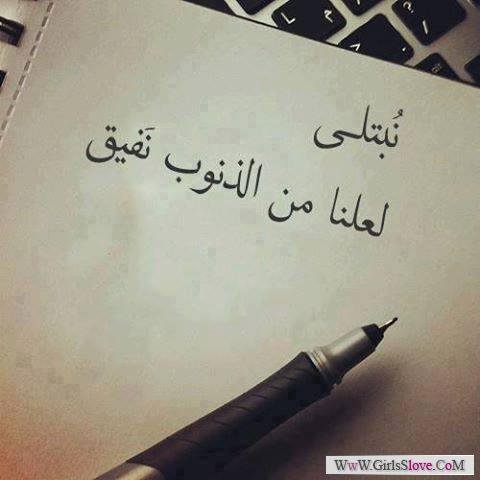 نُبتلى
لعلنا من الذنوب نَفيق
WwW.GirlsSlove.CoM